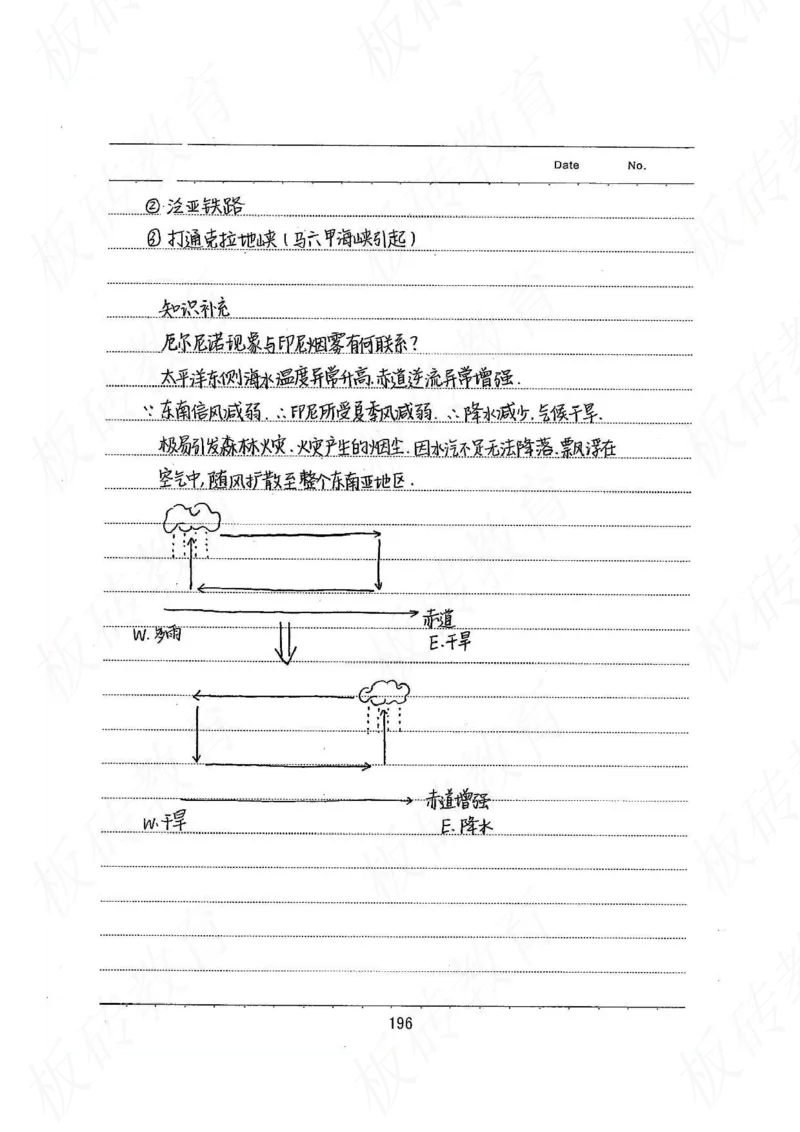 Date No.
② 泛亚铁路
③ 打通克拉地峡(马六甲海峡引起)
知识补充
厄尔尼诺现象与印尼烟雾有何联系?
太平洋东侧海水温度异常升高.赤道逆流异常增强.
∵东南信风减弱.∴印尼所受夏季风减弱.∴降水减少.气候干旱.
极易引发森林火灾.火灾产生的烟尘.因水汽不足无法降落.票风浮在
空气中,随风扩散至整个东南亚地区.
赤道
W.多雨
E.干旱
赤道增强
W.干旱
E.降水
196
板砖教育